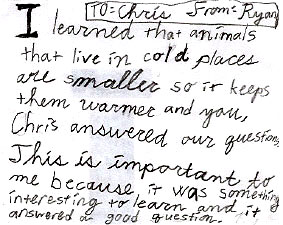 TO: Chris From: Ryan
I learned that animals
that live in cold places
are smaller so it keeps
them warmer and you,
Chris answered our questions.
This is important to
me because it was something
interesting to learn and it
answered a good question.